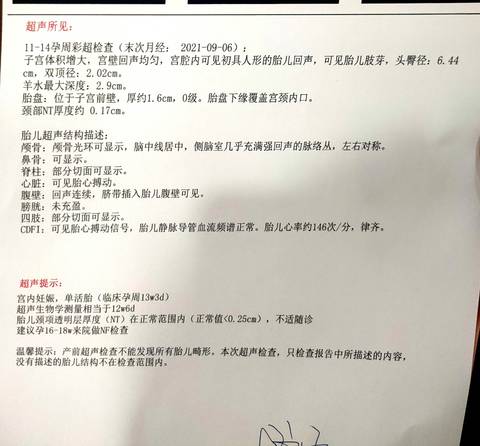 超声所见：
11-14孕周彩超检查（末次月经： 2021-09-06）；
子宫体积增大，宫壁回声均匀，宫腔内可见初具人形的胎儿回声，可见胎儿肢芽，头臀径：6.44
cm，双顶径：2.02cm。
羊水最大深度：2.9cm。
胎盘：位于子宫前壁，厚约1.6cm，0级。胎盘下缘覆盖宫颈内口。
颈部NT厚度约 0.17cm。
胎儿超声结构描述：
颅骨：颅骨光环可显示，脑中线居中，侧脑室几乎充满强回声的脉络丛，左右对称。
鼻骨：可显示。
脊柱：部分切面可显示。
心脏：可见胎心搏动。
腹壁：回声连续，脐带插入胎儿腹壁可见。
膀胱：未充盈。
四肢：部分切面可显示。
CDFI：可见胎心搏动信号，胎儿静脉导管血流频谱正常。胎儿心率约146次/分，律齐。
超声提示：
宫内妊娠，单活胎（临床孕周13w3d）
超声生物学测量相当于12w6d
胎儿颈项透明层厚度（NT）在正常范围内（正常值<0.25cm），不适随诊
建议孕16-18w来院做NF检查
温馨提示：产前超声检查不能发现所有胎儿畸形。本次超声检查，只检查报告中所描述的内容，
没有描述的胎儿结构不在检查范围内。